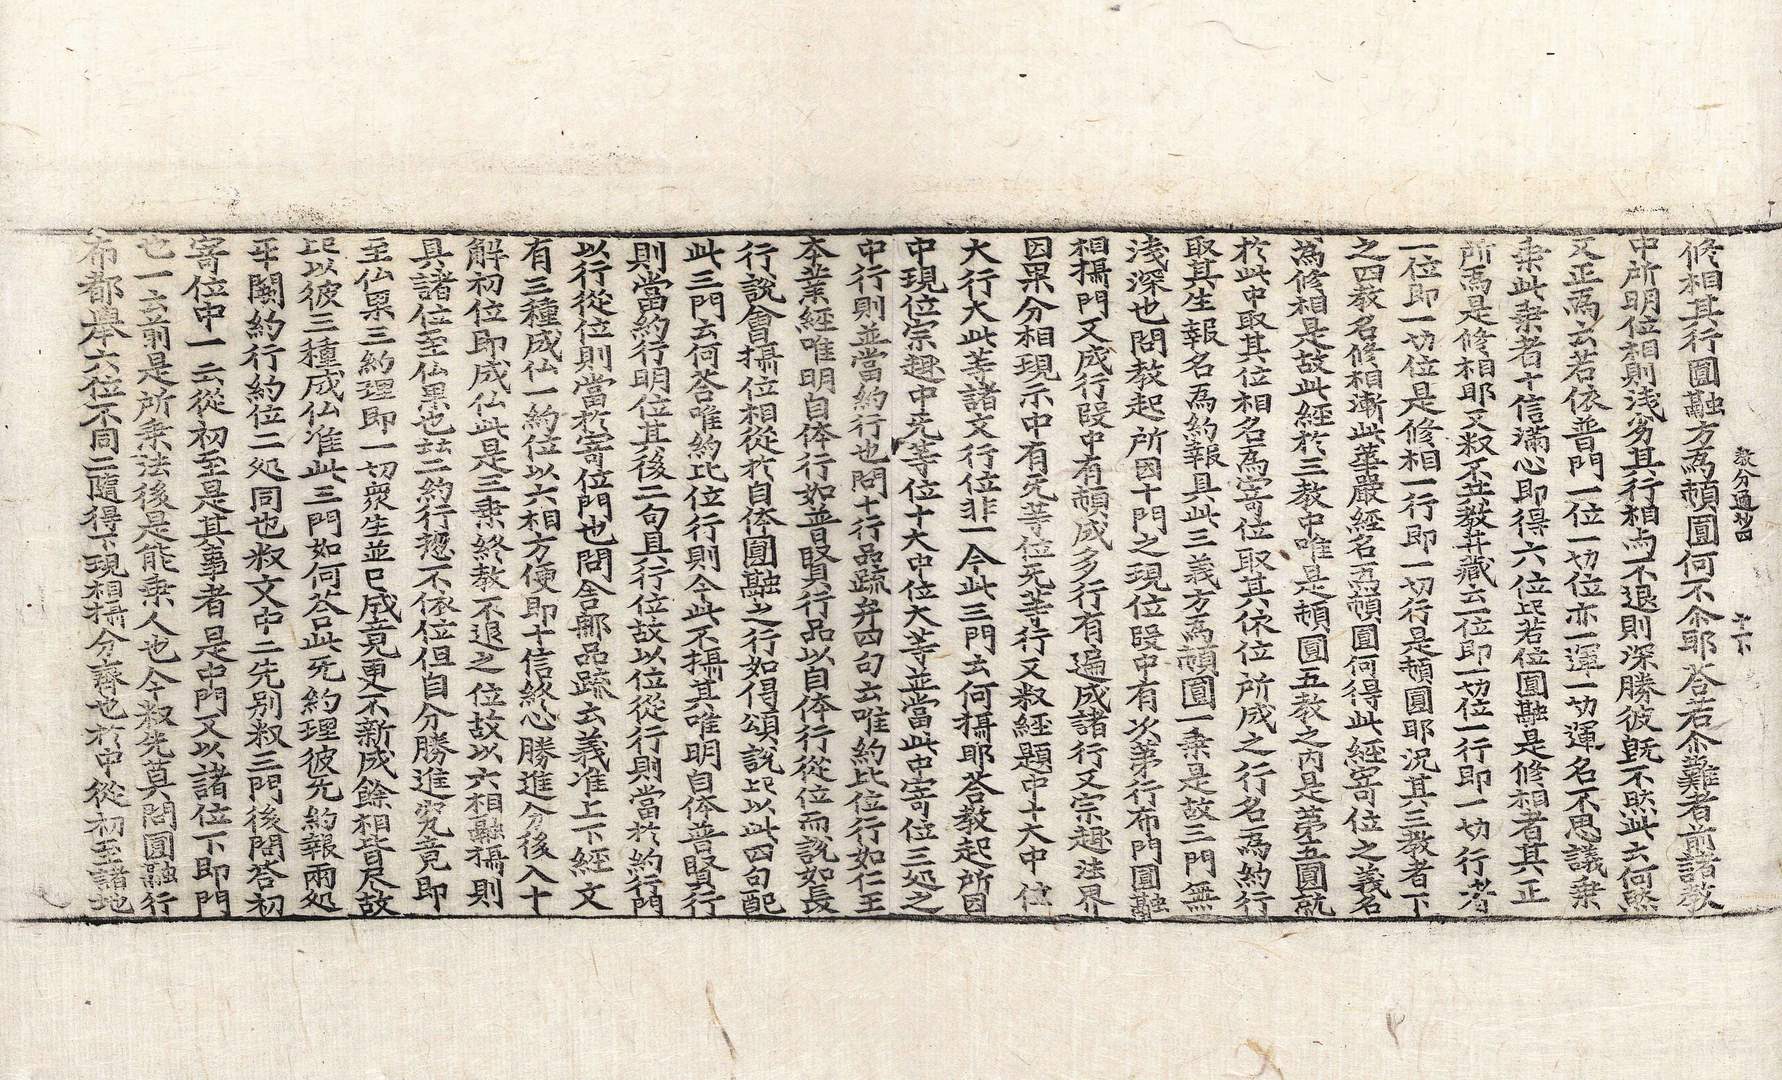 教分通抄四
修相其行圓融方為頓圓何不尒耶荅若尒難者前諸教
中所明位相則淺劣其行相而不退則深勝彼既不然此云何然
又正為云若依普門一位一切位亦一運一切運名不思議乗
乗此乗者十信滿心即得六位㫖若位圓融是修相者其正
所為是修相耶又叙五教并藏云一位即一切位一行即一切行者
一位即一切位是修相一行即一切行是頓圓耶况其三教者下
之四教名修相漸此華嚴經名為頓圓何得此經寄位之義名
為修相是故此經於三教中唯是頓圓五教之内是苐五圓就
於此中取其位相名為寄位取其依位所成之行名為約行
取其生報名為約報具此三義方為頓圓一乗是故三門無
淺深也問教起所因十門之現位叚中有次苐行布門圓融
相攝門又成行叚中有頓成多行有遍成諸行又宗趣法界
因果分相現示中有旡等位旡等行又叙經題中十大中位
大行大此等諸文行位非一今此三門云何攝耶荅教起所因
中現位宗趣中旡等位十大中位大等並當此中寄位三処之
中行則並當約行也問十行品疏弁四句云唯約比位行如仁王
本業經唯明自体行如普賢行品以自体行從位而說如長
行說會攝位相從於自体圓融之行如偈頌說㫖以此四句配
此三門云何荅唯約比位行則今此不攝其唯明自体普賢行
則當約行明位其後二句具行位故以位從行則當於約行門
以行從位則當於寄位門也問舎那品疏云義准上下經文
有三種成仏一約位以六相方便即十信終心勝進分後入十
解初位即成仏此是三乗終教不退之位故以六相融攝則
具諸位至仏果也㫖二約行揔不依位但自分勝進究竟即
至仏果三約理即一切衆生並已成竟更不新成餘相皆尽故
㫖以彼三種成仏准此三門如何荅此旡約理彼旡約報兩処
乎闕約行約位二処同也叙文中二先别叙三門後問荅初
寄位中一云從初至是其事者是中門又以諸位下即門
也一云前是所乗法後是能乗人也今叙先莫問圓融行
布都舉六位不同二隨得下現相攝分齊也於中從初至諸地